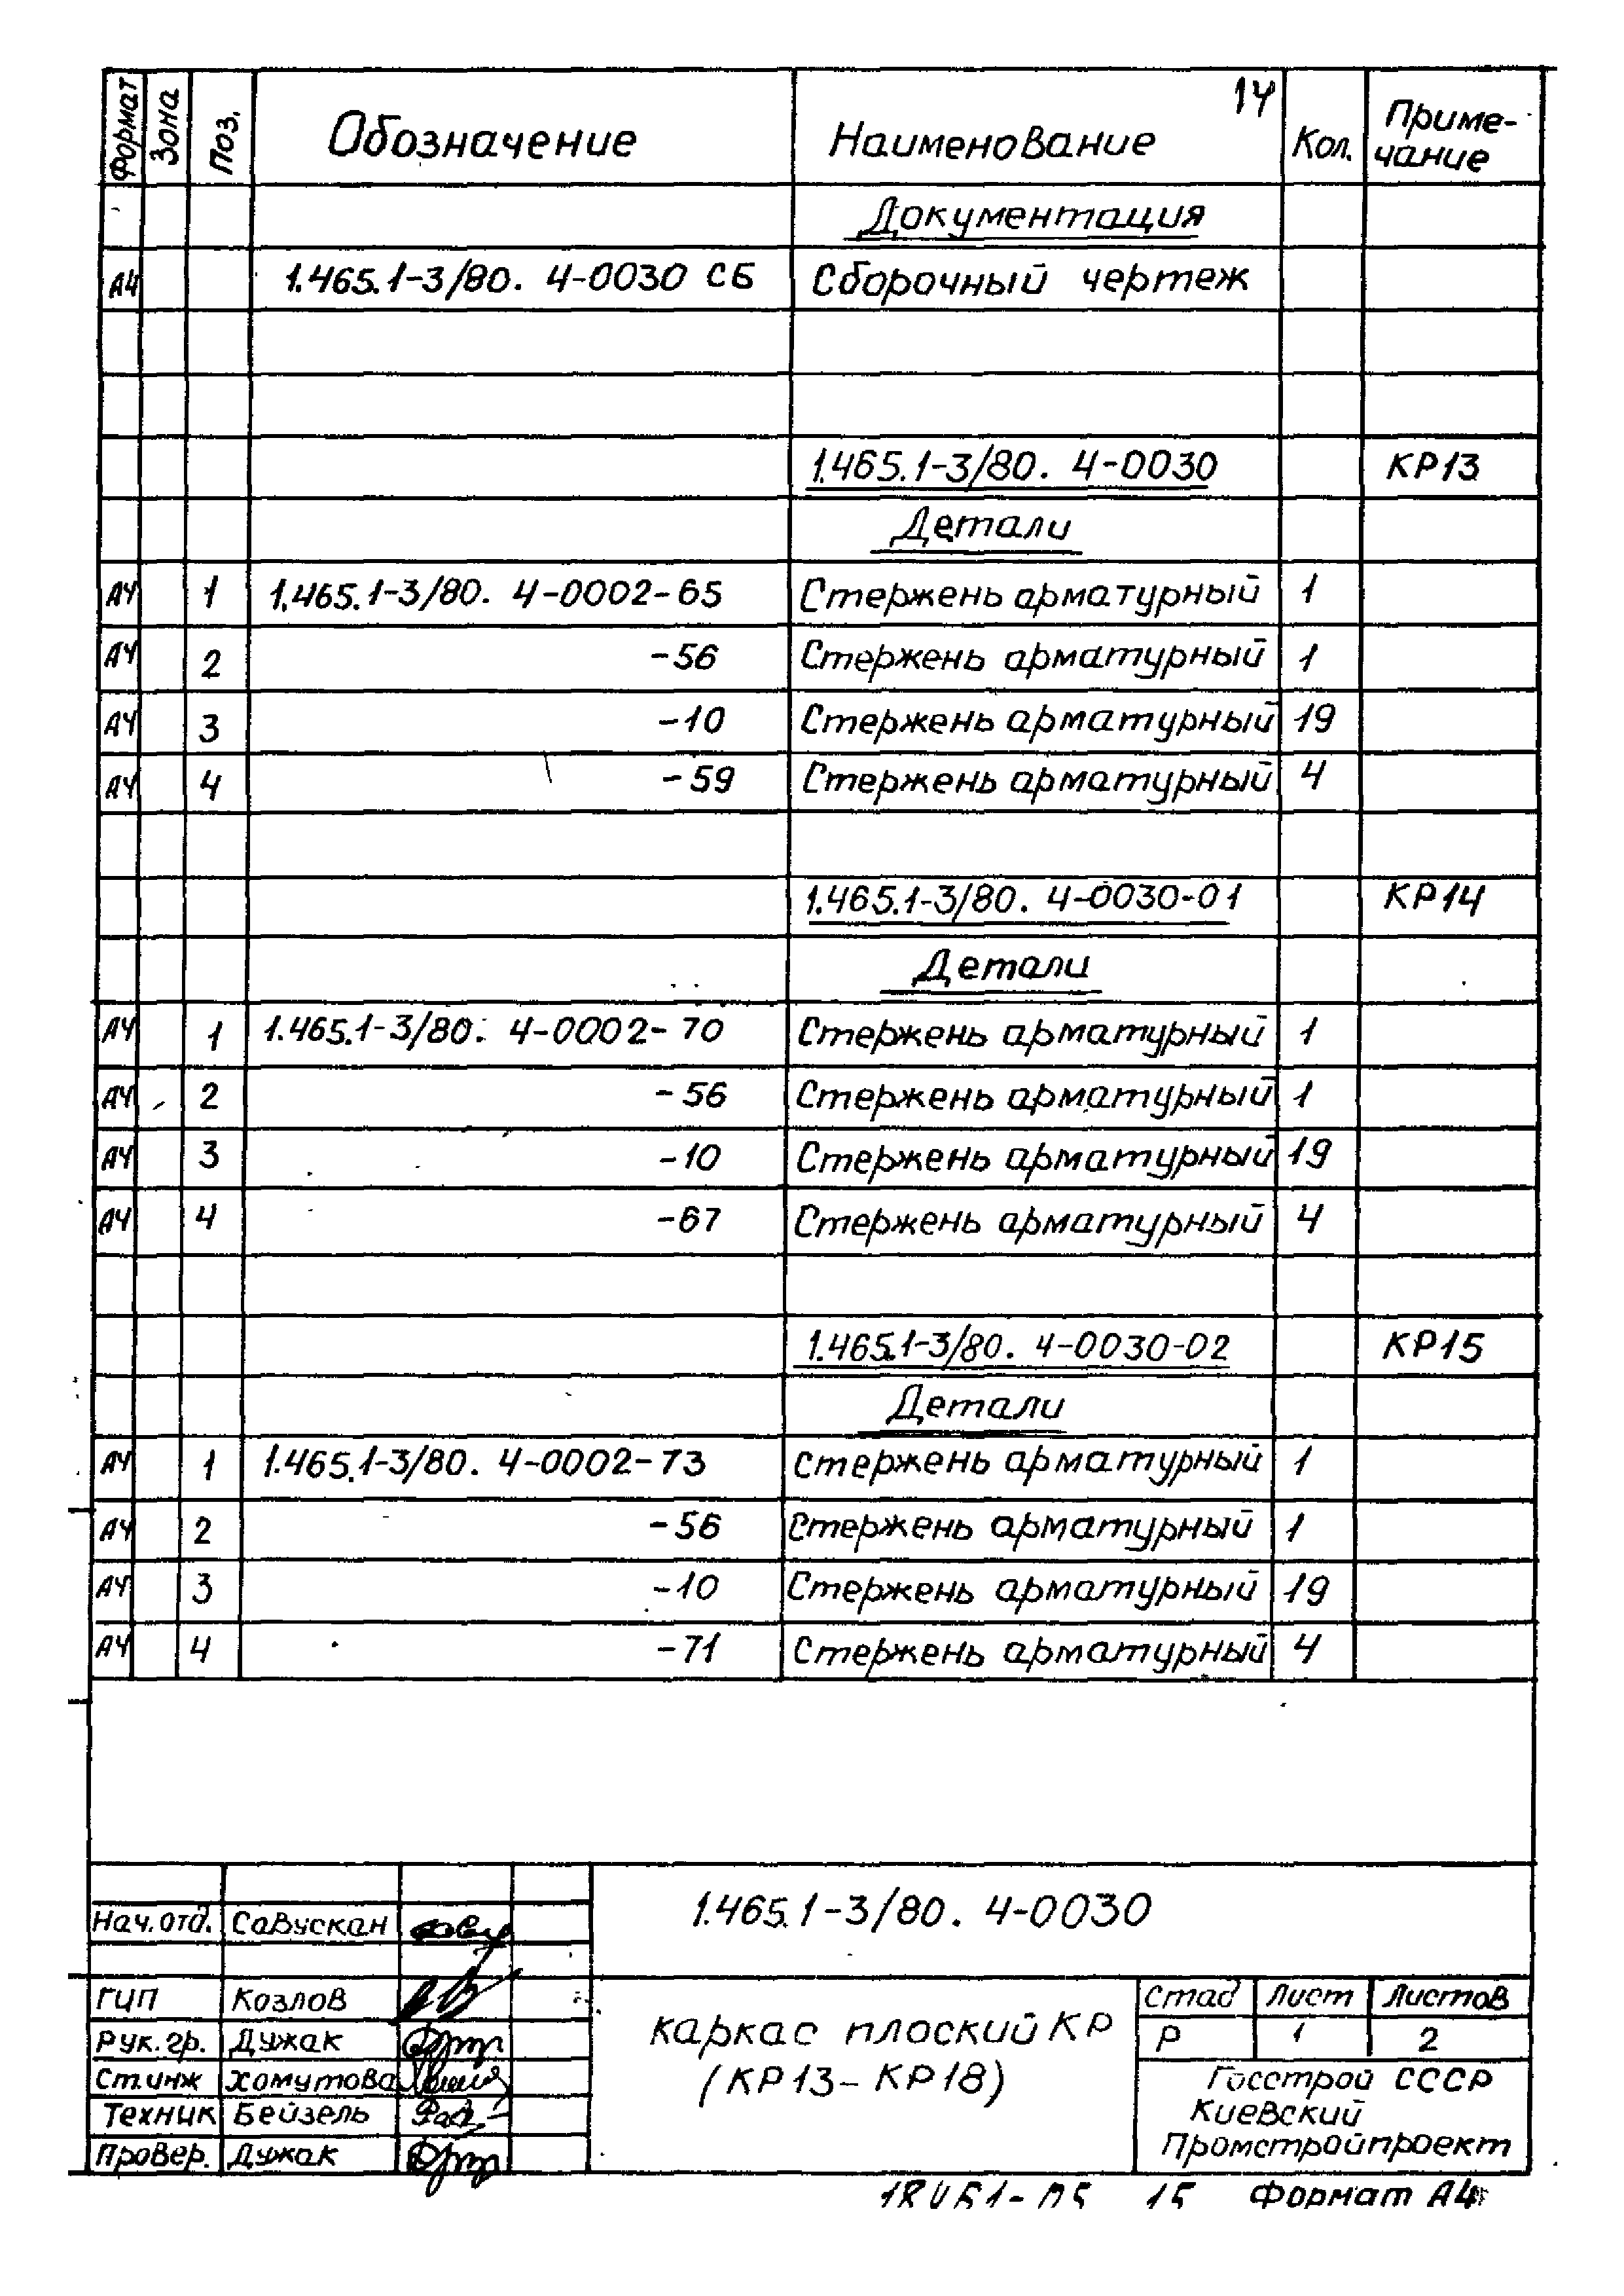 14
Формат Зона Поз. Обозначение Наименование Кол. Приме-
чание
Документация
А4 1.465.1-3/80. 4-0030 СБ Сборочный чертеж
1.465.1-3/80. 4-0030 КР13
Детали
А4 1 1.465.1-3/80. 4-0002-65 Стержень арматурный 1
А4 2 -56 Стержень арматурный 1
А4 3 -10 Стержень арматурный 19
А4 4 -59 Стержень арматурный 4
1.465.1-3/80. 4-0030-01 КР14
Детали
А4 1 1.465.1-3/80. 4-0002-70 Стержень арматурный 1
А4 2 -56 Стержень арматурный 1
А4 3 -10 Стержень арматурный 19
А4 4 -67 Стержень арматурный 4
1.465.1-3/80. 4-0030-02 КР15
Детали
А4 1 1.465.1-3/80. 4-0002-73 Стержень арматурный 1
А4 2 -56 Стержень арматурный 1
А4 3 -10 Стержень арматурный 19
А4 4 -71 Стержень арматурный 4
1.465.1-3/80. 4-0030
Нач. отд. Савускан
ГИП Козлов
Рук. гр. Дужак
Ст. инж Хомутова
Техник Бейзель
Провер. Дужак
каркас плоский КР
(КР13-КР18)
Стад Лист Листов
Р 1 2
Госстрой СССР
Киевский
Промстройпроект
15 Формат А4